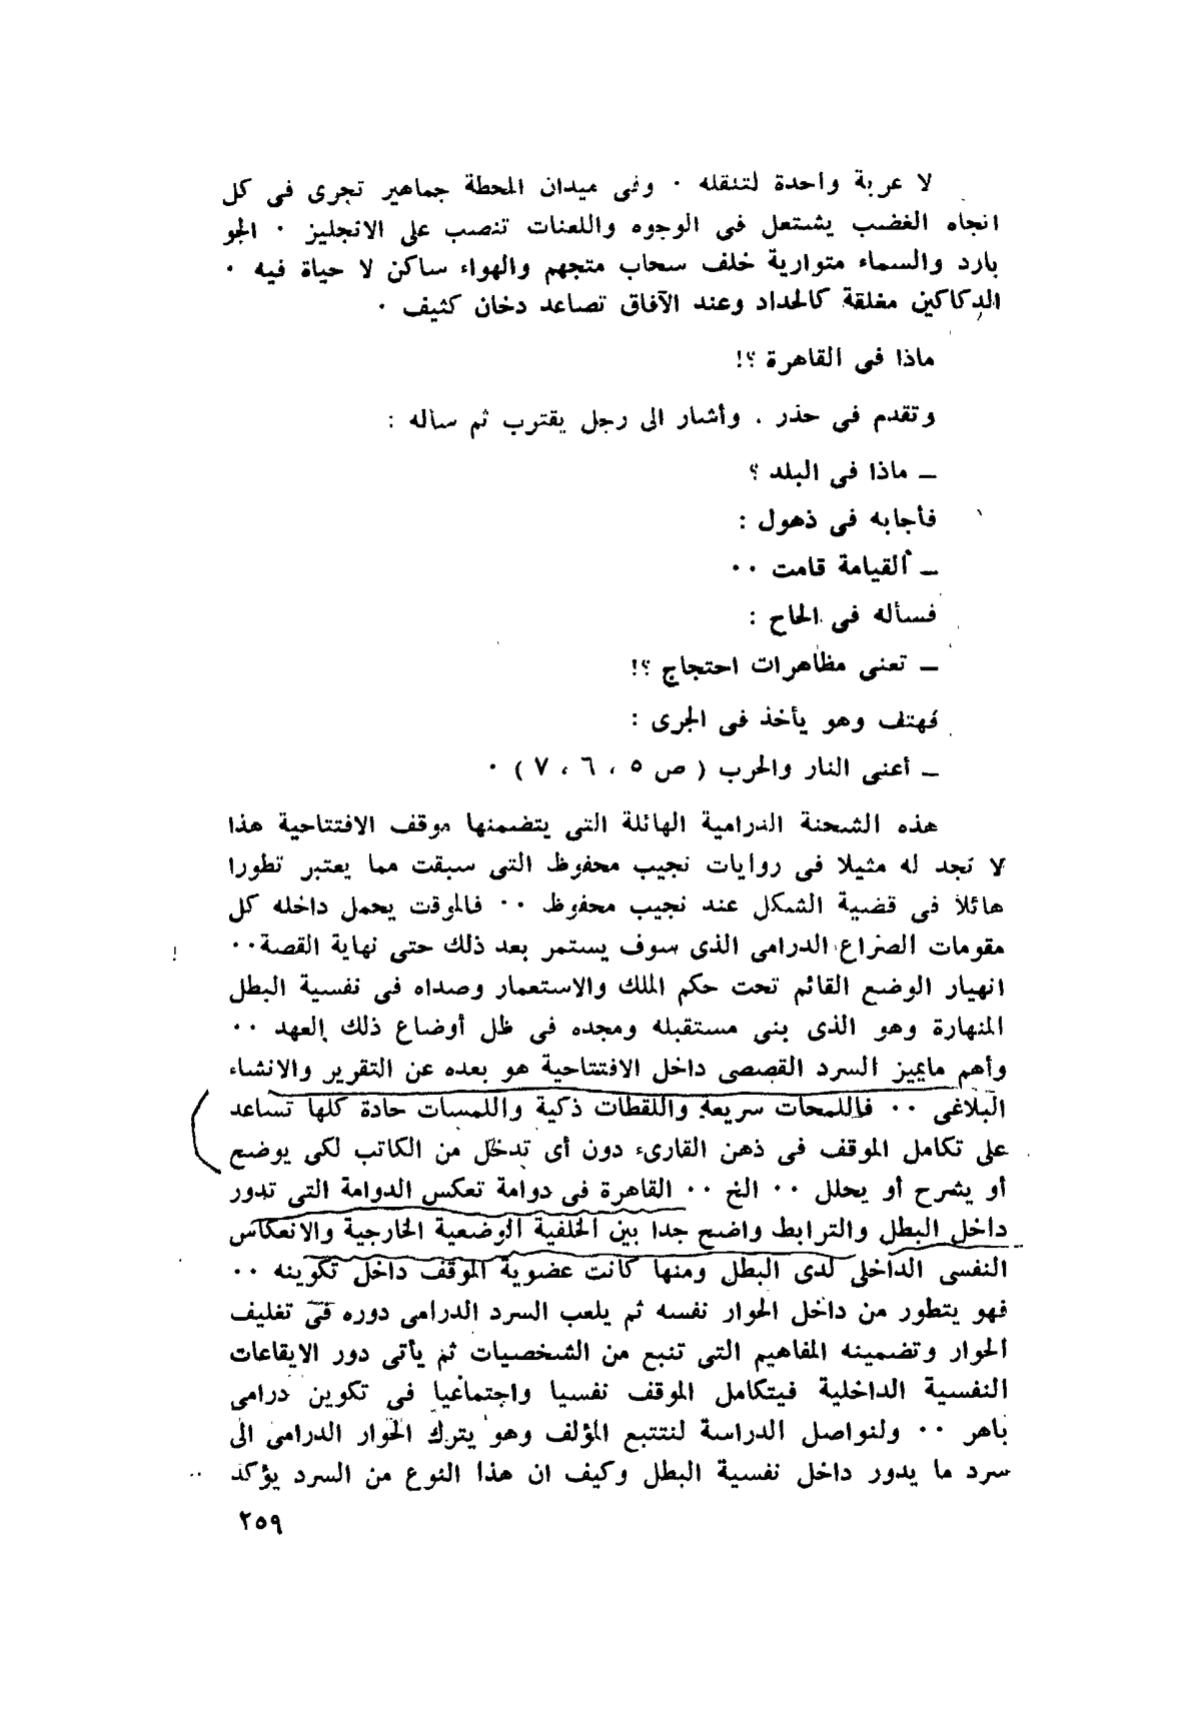 لا عربة واحدة لتنقله . وفى ميدان المحطة جماهير تجرى فى كل
اتجاه الغضب يشتعل فى الوجوه واللعنات تنصب على الانجليز . الجو
بارد والسماء متوارية خلف سحاب متجهم والهواء ساكن لا حياة فيه .
الدكاكين مغلقة كالحداد وعند الآفاق تصاعد دخان كثيف .
ماذا فى القاهرة ؟!
وتقدم فى حذر . وأشار الى رجل يقترب ثم سأله :
ــ ماذا فى البلد ؟
فأجابه فى ذهول :
ــ القيامة قامت ..
فسأله فى الحاح :
ــ تعنى مظاهرات احتجاج ؟!
فهتف وهو يأخذ فى الجرى :
ــ أعنى النار والحرب ( ص ٥ ، ٦ ، ٧ ) .
هذه الشحنة الدرامية الهائلة التى يتضمنها موقف الافتتاحية هذا
لا تجد له مثيلا فى روايات نجيب محفوظ التى سبقت مما يعتبر تطورا
هائلا فى قضية الشكل عند نجيب محفوظ .. فالموقت يحمل داخله كل
مقومات الصراع الدرامى الذى سوف يستمر بعد ذلك حتى نهاية القصة ..
انهيار الوضع القائم تحت حكم الملك والاستعمار وصداه فى نفسية البطل
المنهارة وهو الذى بنى مستقبله ومجده فى ظل أوضاع ذلك العهد ..
وأهم مايميز السرد القصصى داخل الافتتاحية هو بعده عن التقرير والانشاء
البلاغى .. فاللمحات سريعة واللقطات ذكية واللمسات حادة كلها تساعد
على تكامل الموقف فى ذهن القارىء دون أى تدخل من الكاتب لكى يوضح
أو يشرح أو يحلل .. الخ .. القاهرة فى دوامة تعكس الدوامة التى تدور
داخل البطل والترابط واضح جدا بين الخلفية الوضعية الخارجية والانعكاس
النفسى الداخلى لدى البطل ومنها كانت عضوية الموقف داخل تكوينه ..
فهو يتطور من داخل الحوار نفسه ثم يلعب السرد الدرامى دوره فى تغليف
الحوار وتضمينه المفاهيم التى تنبع من الشخصيات ثم يأتى دور الايقاعات
النفسية الداخلية فيتكامل الموقف نفسيا واجتماعيا فى تكوين درامى
باهر .. ولنواصل الدراسة لنتتبع المؤلف وهو يترك الحوار الدرامى الى
سرد ما يدور داخل نفسية البطل وكيف ان هذا النوع من السرد يؤكد
٢٥٩